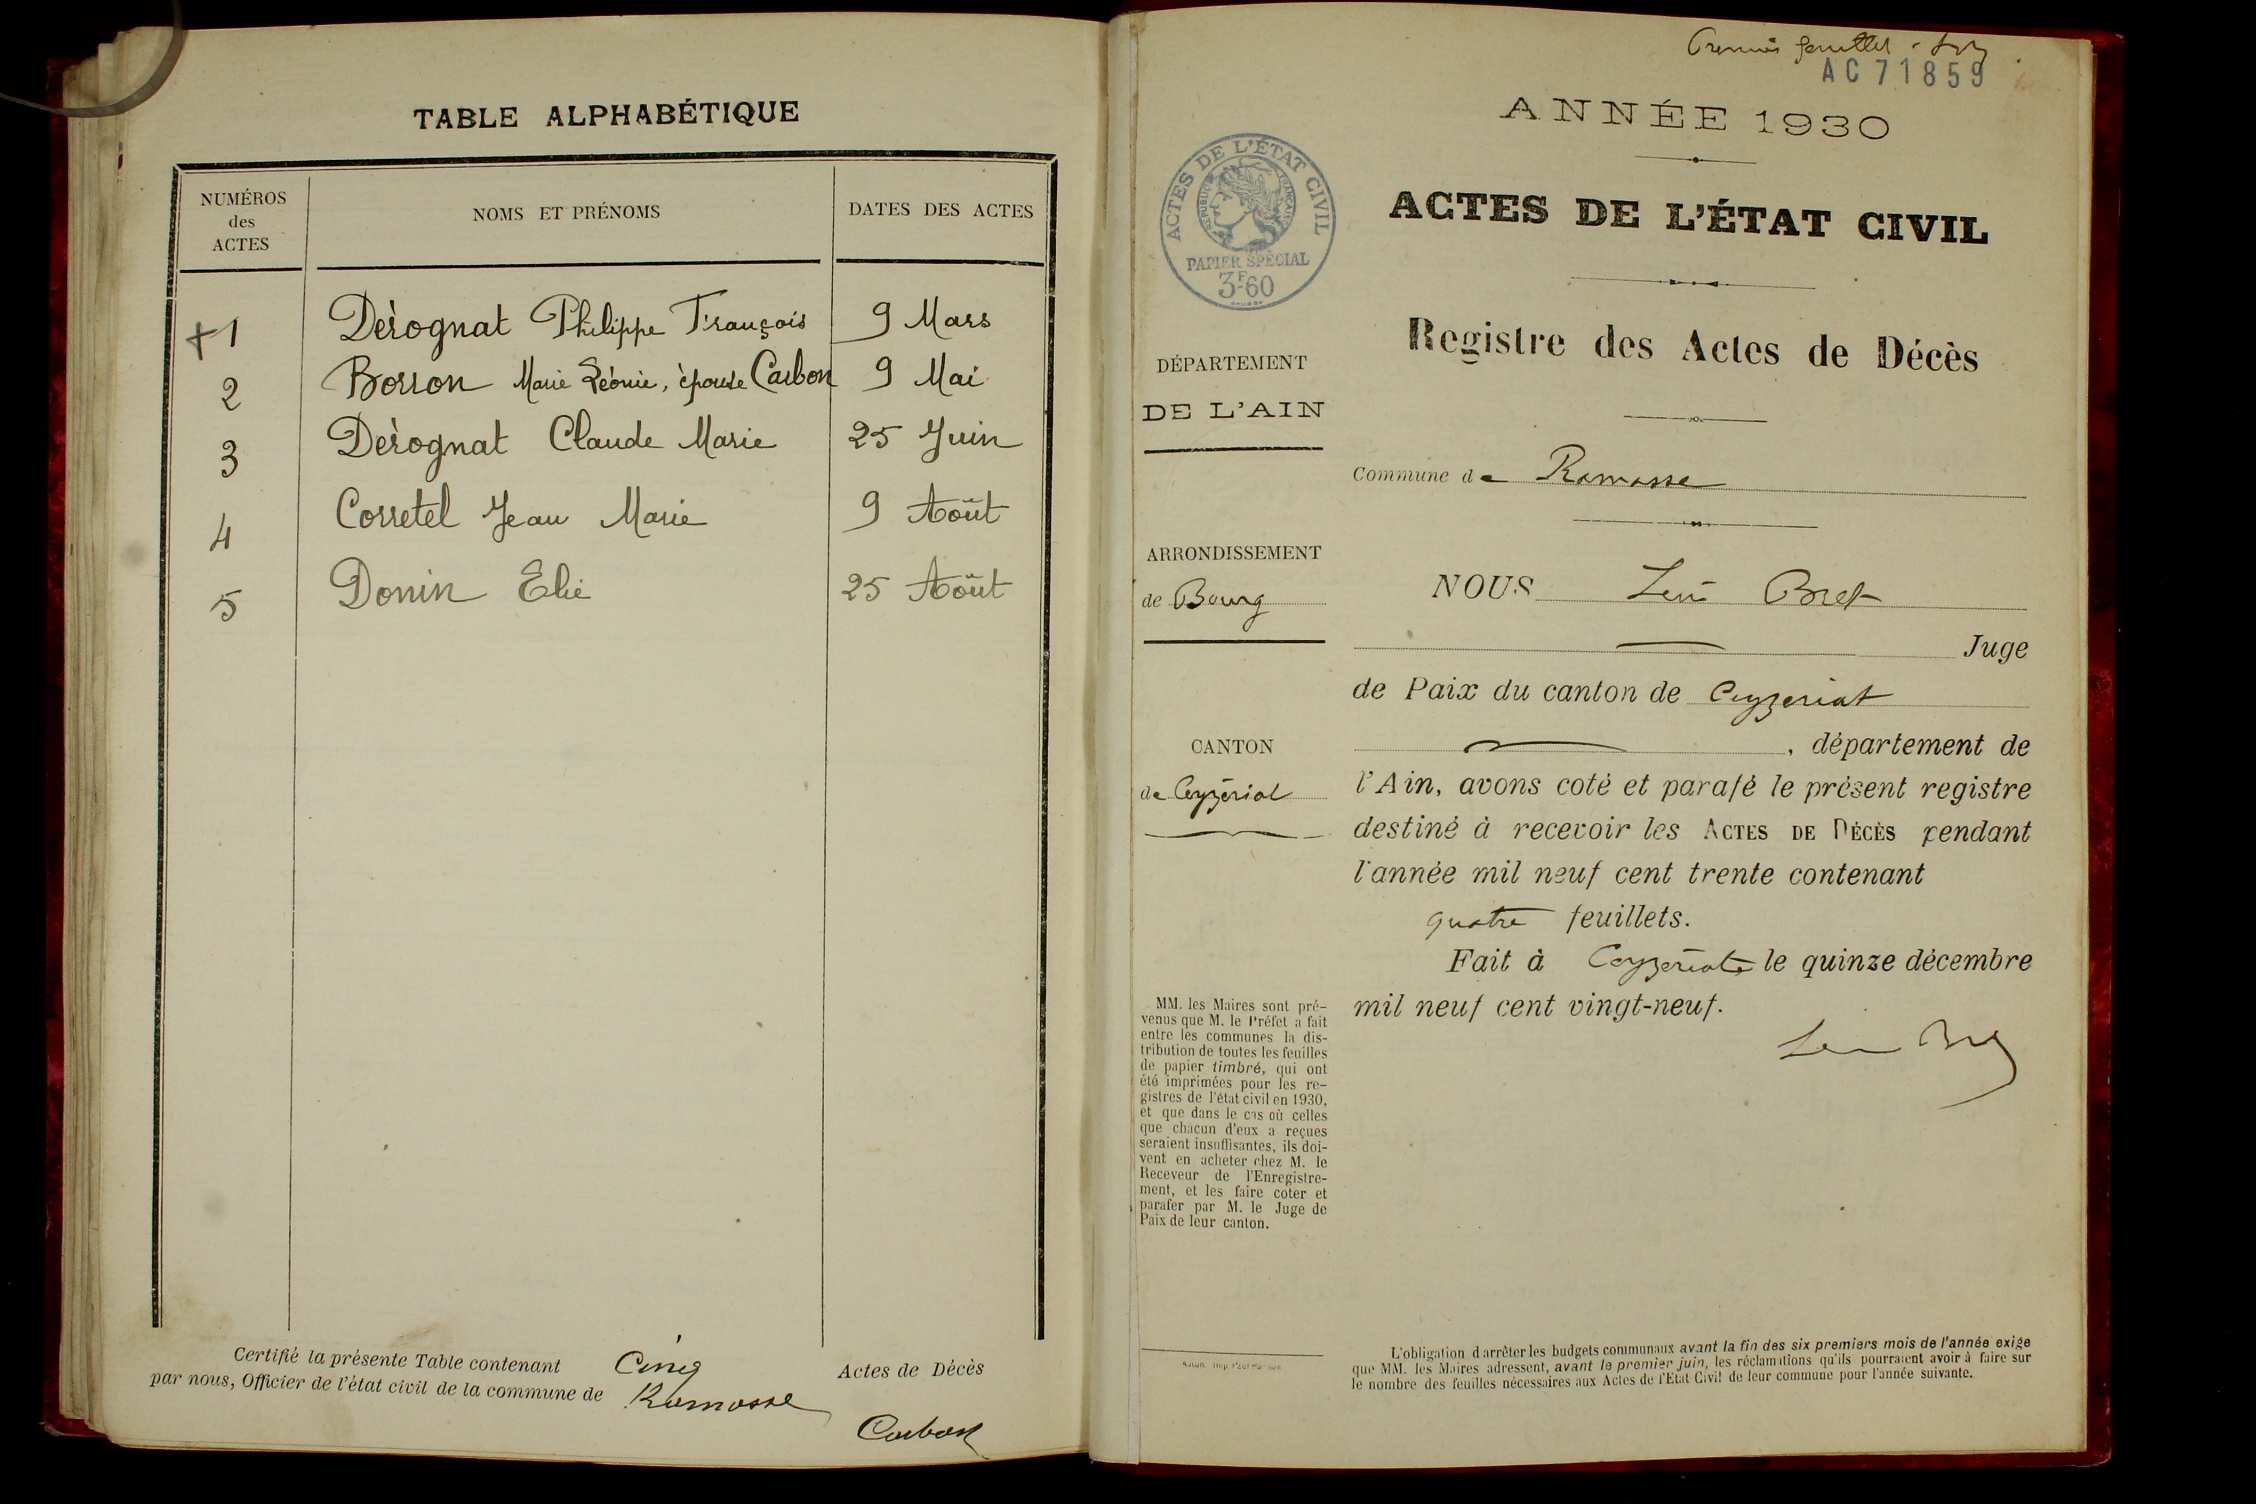 TABLE ALPHABÉTIQUE
NUMÉROS
des
ACTES
NOMS ET PRÉNOMS
DATES DES ACTES
+1 Dérognat Philippe François 9 Mars
2 Borron Marie Léonie, épouse Carbon 9 Mai
3 Dérognat Claude Marie 25 Juin
4 Corretel Jean Marie 9 Août
5 Donin Elie 25 Août
Certifié la présente Table contenant Cinq Actes de Décès
par nous, Officier de l'état civil de la commune de Ramasse
Carbon
Premier feuillet
AC 71859
ANNÉE 1930
ACTES DE L'ÉTAT CIVIL
RÉPUBLIQUE FRANÇAISE
PAPIER SPÉCIAL
3F60
ACTES DE L'ÉTAT CIVIL
Registre des Actes de Décès
DÉPARTEMENT
DE L'AIN
Commune de Ramasse
ARRONDISSEMENT
de Bourg
CANTON
de Ceyzériat
NOUS Léon Bret
Juge
de Paix du canton de Ceyzeriat
, département de
l'Ain, avons coté et parafé le présent registre
destiné à recevoir les ACTES DE DÉCÈS pendant
l'année mil neuf cent trente contenant
quatre feuillets.
Fait à Ceyzériat le quinze décembre
mil neuf cent vingt-neuf.
MM. les Maires sont pré-
venus que M. le Préfet a fait
entre les communes la dis-
tribution de toutes les feuilles
de papier timbré, qui ont
été imprimées pour les re-
gistres de l'état civil en 1930,
et que dans le cas où celles
que chacun d'eux a reçues
seraient insuffisantes, ils doi-
vent en acheter chez M. le
Receveur de l'Enregistre-
ment, et les faire coter et
parafer par M. le Juge de
Paix de leur canton.
L'obligation d'arrêter les budgets communaux avant la fin des six premiers mois de l'année exige
que MM. les Maires adressent, avant le premier juin, les réclamations qu'ils pourraient avoir à faire sur
le nombre des feuilles nécessaires aux Actes de l'Etat Civil de leur commune pour l'année suivante.